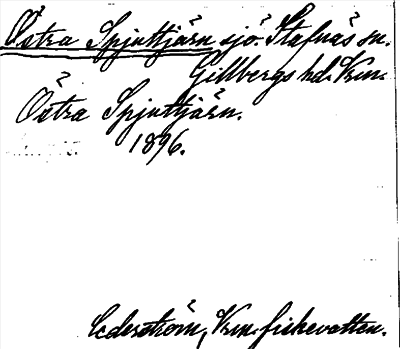 Östra Spjuttjärn sjö. Stafnäs sn.
Gillbergs hd. Vrm.
Östra Spjuttjärn.
1896.
Cederström, Vrm. fiskevatten.